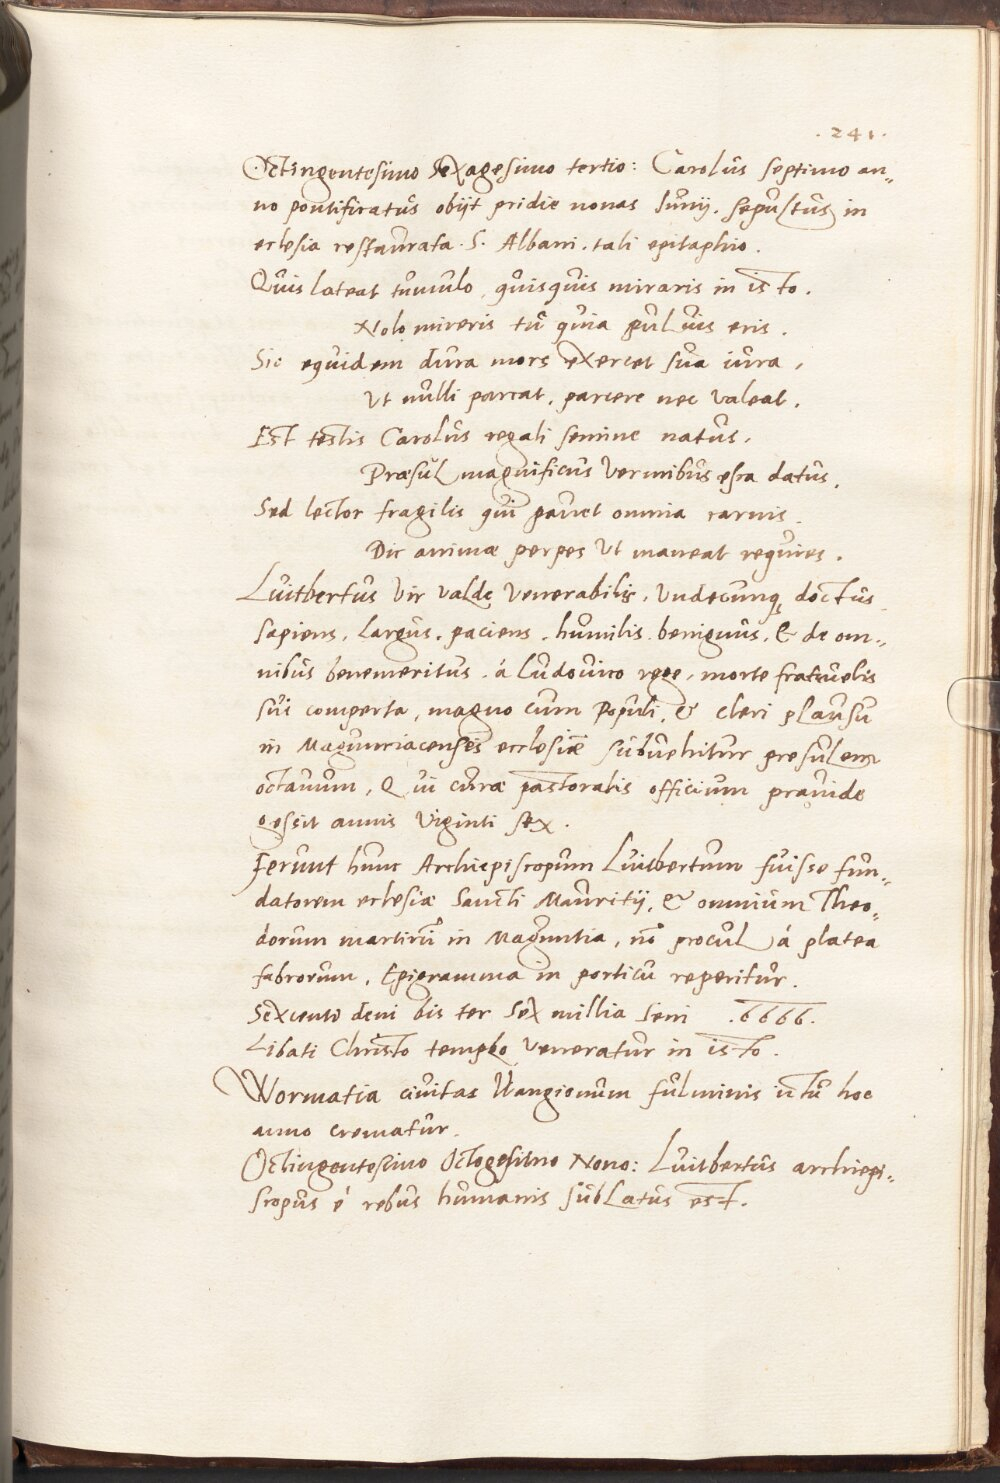 .241.
Octingentesimo Sexagesimo tertio: Carolus septimo an„
no pontificatus obijt pridie nonas Junij. sepultus in
eclesia restaurata. S. Albani. tali epitaphio.
Quis lateat tumulo, quisquis miraris in isto.
Nolo mireris tu quia pulvis eris.
Sic equidem dura mors exercet sua iura,
Ut nulli parcat, parcere nec valeat.
Est testis Carolus regali semine natus,
Præsul magnificus vermibus esca datus.
Sed lector fragilis qui pavet omnia carnis.
Dic animæ perpes ut maneat requies.
Luitbertus vir valde venerabilis, undecunq doctus
sapiens, largus, paciens, humilis benignus, & de om„
nibus benemeritus. á Ludovico rege, morte fratruelis
sui comperta, magno cum populi, & cleri plausu
in Magunciacensis ecclesiæ subvehitur presulem
octavum, Qui curæ pastoralis officium pravide
gessit annis viginti sex.
Ferunt hunc Archiepiscopum Luitbertum fuisse fun„
datorem eclesiæ Sancti Mauritij, & omnium Theo„
dorum martirū in Maguntia, nō procul á platea
fabrorum. Epigramma in porticu reperitur.
Sexcenti deni bis ter sex millia seni .6666.
Libati Christo templo veneratur in isto.
Wormatia civitas Wangionum fulminis ictu hoc
anno crematur.
Octingentesimo Octogesimo Nono: Luitbertus archiepi„
scopus é rebus humanis sublatus est.